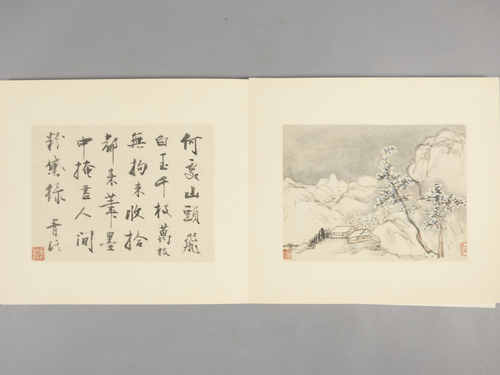 何處山頭飛
白玉千枝萬枝
無拘束收拾
都來筆墨
中掩盡人間
粉黛綠 青